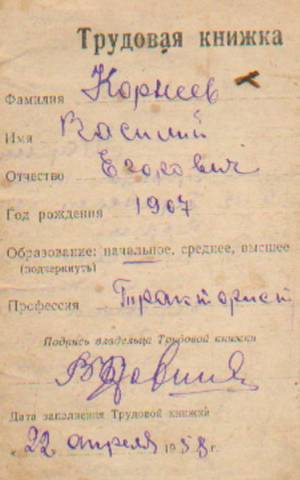 Трудовая книжка
Фамилия Корнеев
Имя Василий
Отчество Егорович
Год рождения 1907
Образование: начальное, среднее, высшее
(подчеркнуть)
Профессия Тракторист
Подпись владельца Трудовой книжки
Дата заполнения Трудовой книжки
"22 апреля 1958 г.